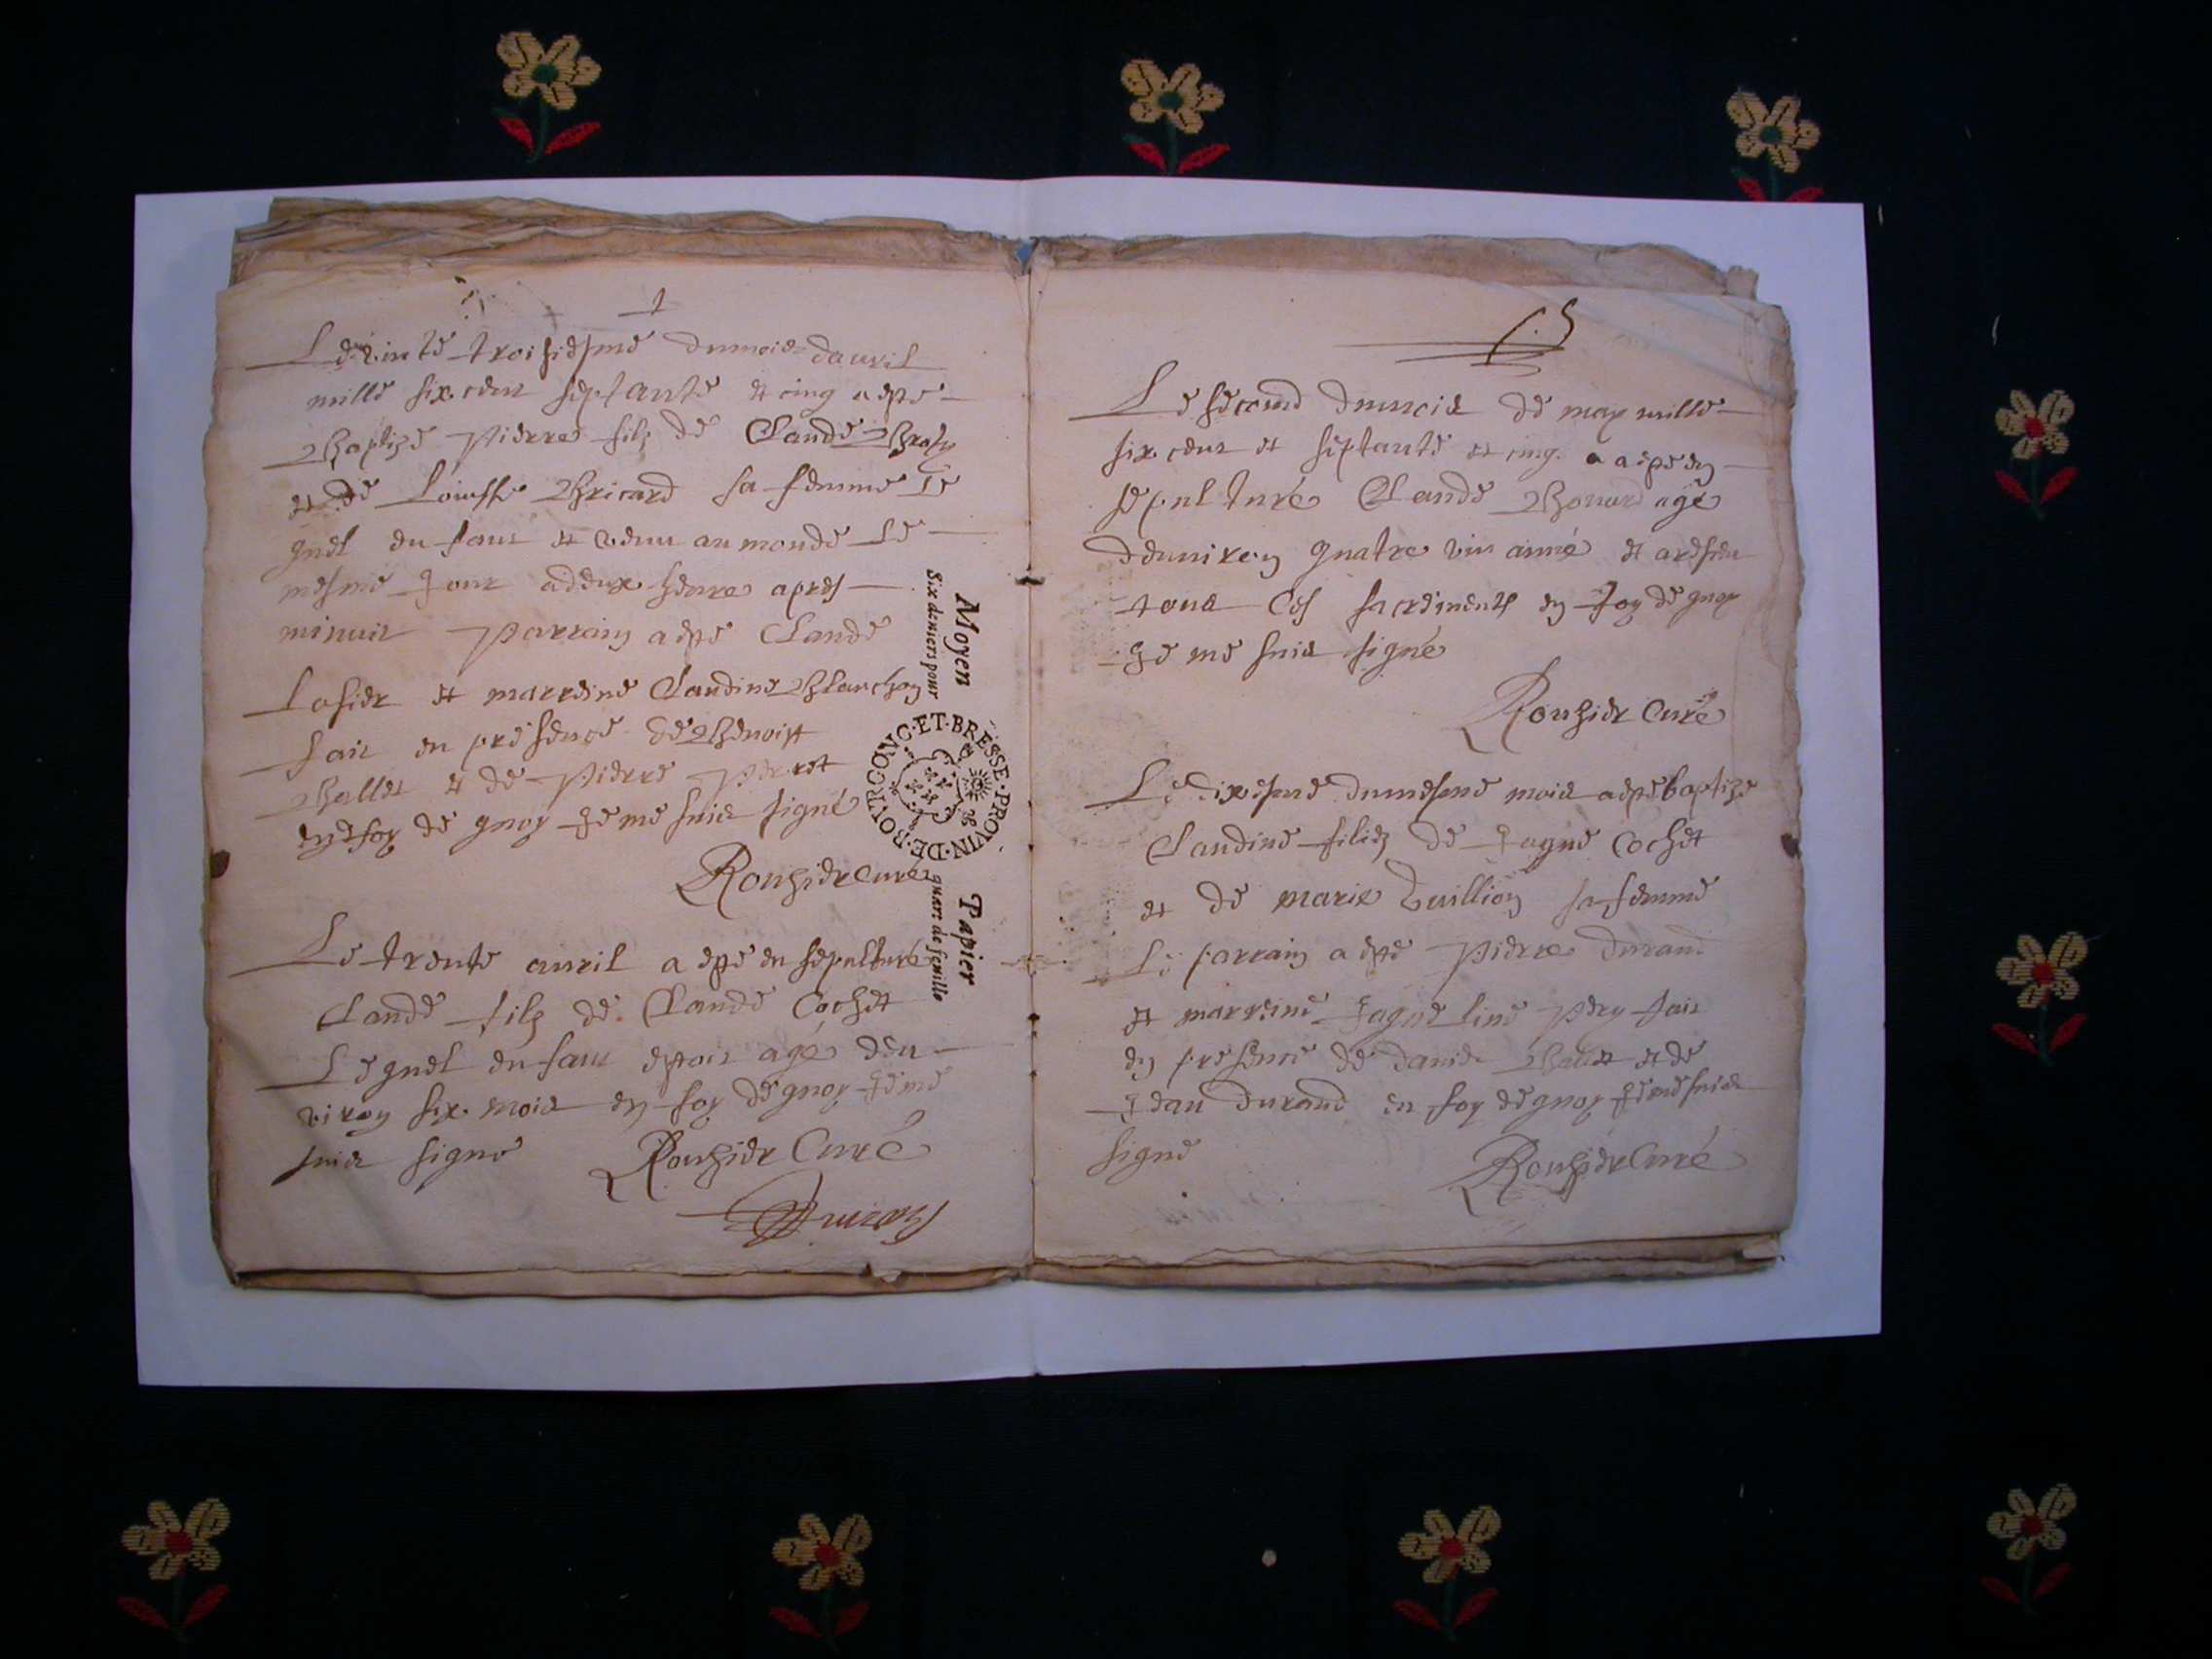 Le vinte troisiesme du mois dauril
mille six cent septante et cinq a esté
Baptizé Pierre filz de Claude
et de Louisse Bricard sa femme le
quel enfant et venu au monde le
mesme jour a deux heure apres
minuit Parrain a esté Claude
Losier et marreine Claudine Blanchon
fait en presence de Benoist
Ballet et de Pierre Perret
en foy de quoy je me suis signé
Rouhier Curé
Le trente auril a esté en sepulture
Claude filz de Claude Cochet
Lequel enfant estoit agé den
viron six mois en foy de quoy je me
suis signé Rouhier Curé
Moyen Papier
Six deniers pour quart de feuille
ET·BRESSE·PROVIN·DE·BOVRGONG·
Le second du mois de may mille
six cent et septante et cinq a esté en
sepulture Claude agé
denuiron quatre vin anné et a
tous Ces sacrements en foy de quoy
je me suis signé
Rouhier Curé
Le dixiesme du mesme mois a esté baptizé
Claudine fillie de Jaque Cochet
et de marie Vuillion sa femme
Le parrain a esté Pierre durand
et marreine Jaqueline Pery fait
en presence de et de
Jean durand en foy de quoy je me suis
signé Rouhier Curé